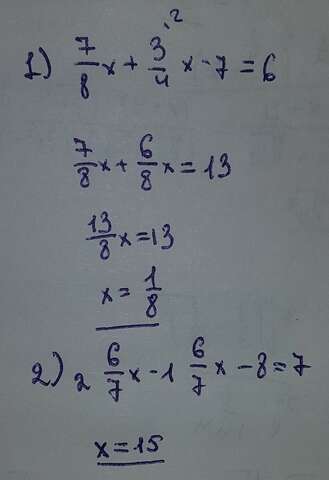 1) 7/8 x + 3/4 ˈ² x - 7 = 6
7/8 x + 6/8 x = 13
13/8 x = 13
x = 1/8
2) 2 6/7 x - 1 6/7 x - 8 = 7
x = 15